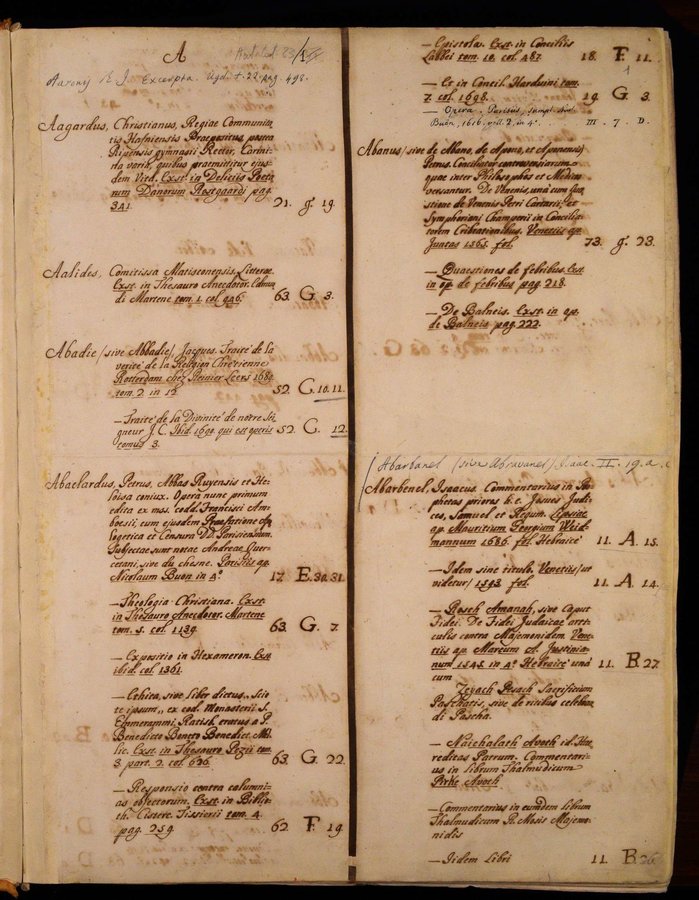 A
Aarony R. I. Excerpta. Ugol. t. 22. pag. 498.
Aagardus, Christianus, Regiae Communita,
tis Hafniensis Praepositus, postea
Ripensis gymnasii Rector, Carmi,
na varia, quibus praemittitur ejus,
dem Vita. Exst. in Deliciis Poeta
rum Danorum Rostgaardi pag.
341. 21. g. 19.
Aalides, Comitissa Matisconensis, Litterae.
Exst. in Thesauro Anecdotor. Edmun
di Martene tom. 1. col. 946. 63. G. 3.
Abadie / sive Abbadie / Jacques. Traité de la
verité de la Religion Chretienne
Rotterdam chez Reinier Leers 1689
tom. 2. in 12. 52. G. 10. 11.
— Traité de la Divinité de notre Sei,
gneur J. C. Ibid. 1690. qui est operis 52. G. 12.
tomus 3.
Abaelardus, Petrus, Abbas Ruyensis et He:
loisa coniux. Opera nunc primum
edita ex mss. codd. Francisci Am:
boesii, cum ejusdem Praefatione Apo
logetica et Censura DD. Parisiensium.
Subjectae sunt notae Andreae Quer:
cetani, sive du chesne. Parisiis ap.
Nicolaum Buon in 4° 17. E. 30. 31.
— Theologia Christiana. Exst.
in Thesauro Anecdotor. Martene
tom. 5. col. 1139. 63. G. 7.
— Expositio in Hexameron. Exst.
ibid. col. 1361.
— Ethica, sive liber dictus,, Scio
te ipsum,, ex cod. Monasterii S.
Emmerammi, Ratisb. erutus a P.
Benedicto Bonetto Benedict. Mel
lic. Exst. in Thesauro Pezii tom.
3. part. 2. col. 626. 63. G. 22.
— Responsio contra calumni:
as objectorum. Exst. in Biblio
th. Cisterc. Tissierii tom. 4.
pag. 259. 62. F. 19.
— Epistolae. Exst. in Conciliis
Labbei tom. 10. col. 487. 18. F. 11.
— Et in Concil. Harduini tom.
7. col. 1698. 19. G. 3.
— Opera. Parisiis,
Buon, 1616. in 4° III. 7. D.
Abanus / sive de Abano, de Apono, et Aponensis /
Petrus. Conciliator controversiarum
quae inter Philosophos et Medicos
versantur. De Venenis, una cum Quae
stione de Venenis Petri Carrarii, et
Symphoriani Champerii in Concilia
torem Cribrationibus. Venetiis ap.
Juntas 1565. fol. 73. g. 23.
— Quaestiones de febribus. Exst.
in op. de febribus pag. 218.
— De Balneis. Exst. in op.
de Balneis pag. 222.
Abarbanel (sive Abravanel) Isaac. II. 19. a. c
Abarbenel, Isaacus. Commentarius in Pro
phetas priores h. e. Josuae Judi:
ces, Samuel et Regum. Lipsiae
ap. Mauritium Georgium Weid:
mannum 1686. fol. Hebraice 11. A. 15.
— Idem sine titulo, Venetiis / ut
videtur / 1593 fol. 11. A. 14.
— Rosch Amanah, sive Caput
Fidei. De Fidei Judaicae arti:
culis contra Majemonidem. Vene
tiis ap. Marcum Ant. Justinia:
num 1545. in 4° Hebraice una 11. B. 27
cum
Zevach Pesach Sacrificium
Paschatis, sive de ritibus celebran
di Pascha.
— Naichalath Avoth id. Hae
reditas Patrum. Commentari:
us in librum Thalmudicum
Pirke Avoth
— Commentarius in eumdem librum
Thalmudicum R. Mosis Majemo:
nidis
— Iidem Libri 11. B. 26